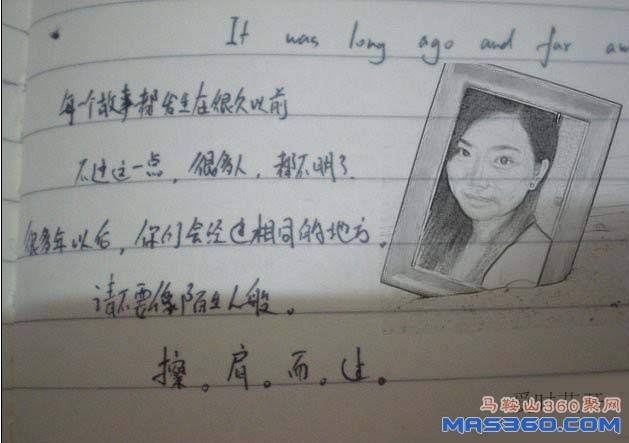 It was long ago and far aw
每个故事都发生在很久以前
不过这一点，很多人，都不明了
很多年以后，你们会经过相同的地方。
请不要像陌生人般。
擦。肩。而。过。
马鞍山360聚网
MAS360.COM